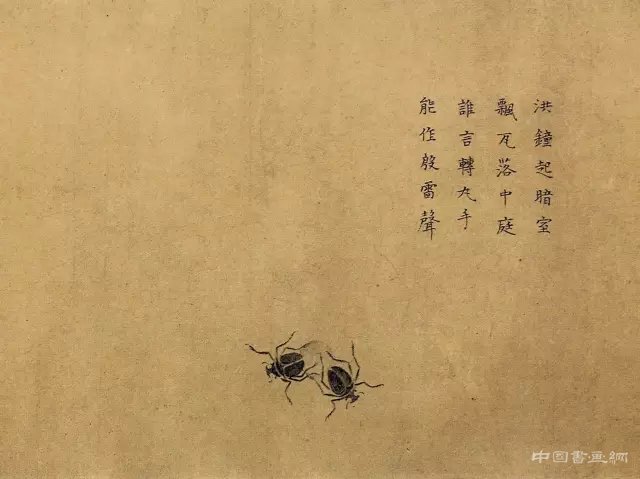 洪鐘起暗室
飄瓦落中庭
誰言轉丸手
能作殷雷聲
中国書画網